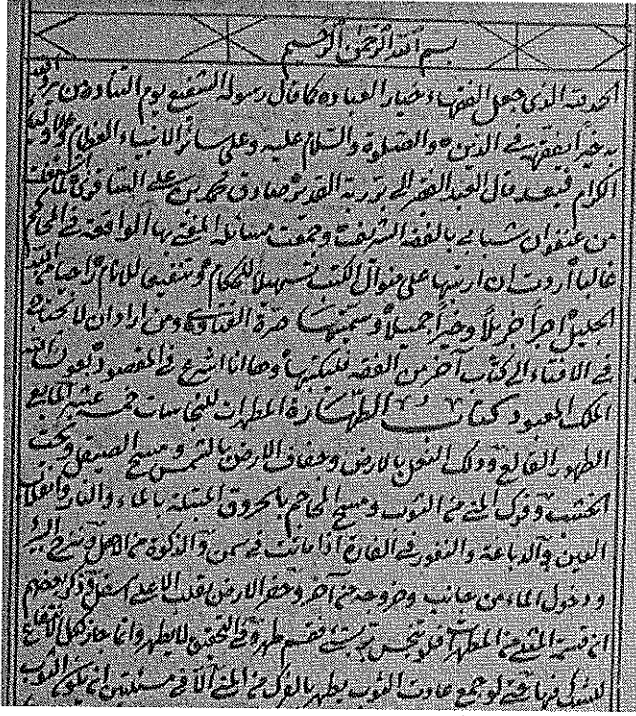 بسم الله الرحمن الرحيم
الحمد لله الذى جعل الفقهاء خيار العباده كما قال رسوله الشفيع يوم التناد من يرد الله
به خيرا يفقهه فى الدين والصلوة والسلام عليه وعلى سائر الانبياء العظام وآله
الكرام فيقول العبد الفقير الى ربه القدير صادق محمد بن على الساقزى لما اشتغلت
من عنفوان شبابى بالفقه الشريف وجمعت مسائله المفتى بها الواقعة فى المحاكم
غالبا اردت ان ارتبها على منوال الكتب تسهيلا للحكام وتنفيعا للانام راجيا من الله
الجليل اجرا جزيلا وخيرا جميلا وسميتها صرة الفتاوى ومن اراد ان لا يحتاج
فى الافتاء الى كتاب آخر من الفقه فليكتبها وها انا اشرع فى المقصود بعون الله
الملك المعبود كتاب الطهارة المطهرات للنجاسات خمسة عشر المايع
الطهور القالع ودلك النعل بالارض وجفاف الارض بالشمس ومسح الصيقل ونحت
الخشب وفرك المنى من الثوب ومسح المحاجم بالخروق المبتلة بالماء والنار وانقلاب
العين والدباغة والتقور فى الفارة اذا ماتت فى سمن والذكوة من الاهل ونزح البئر
ودخول الماء من جانب وخروجه من آخر وحفر الارض بقلب الاعلى اسفل وذكر بعضهم
ان قسمة المثلى من المطهرات فلو تنجس بر فقسم طهر وفى التحقيق لا يطهر وانما جاز لكل الانتفاع
للشك فيها حتى لو جمع عادت الثوب يطهر بالفرك من المنى الا فى مسئلتين ان يكون الثوب